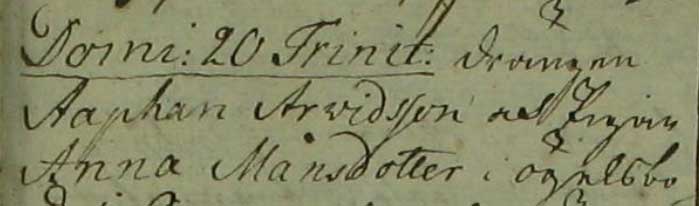 Domi: 20 Trinit: drängen
Arvidsson och Pigan
Anna Månsdotter i ögelsbo